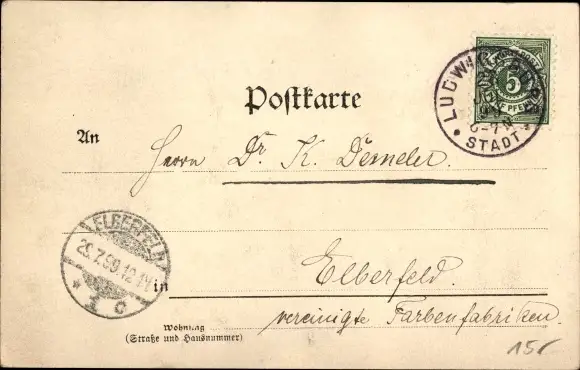 Postkarte
LUDWIGSBURG
5
STADT
An
Herrn Dr. K. Demeler.
ELBERFELD
29.7.99.12-1V
* 3 c
in Elberfeld.
vereinigte Farbenfabriken.
Wohnung
(Straße und Hausnummer)
15,-